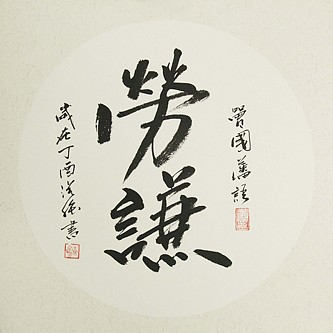 曾國藩語
勞謙
歲在丁酉浚德書